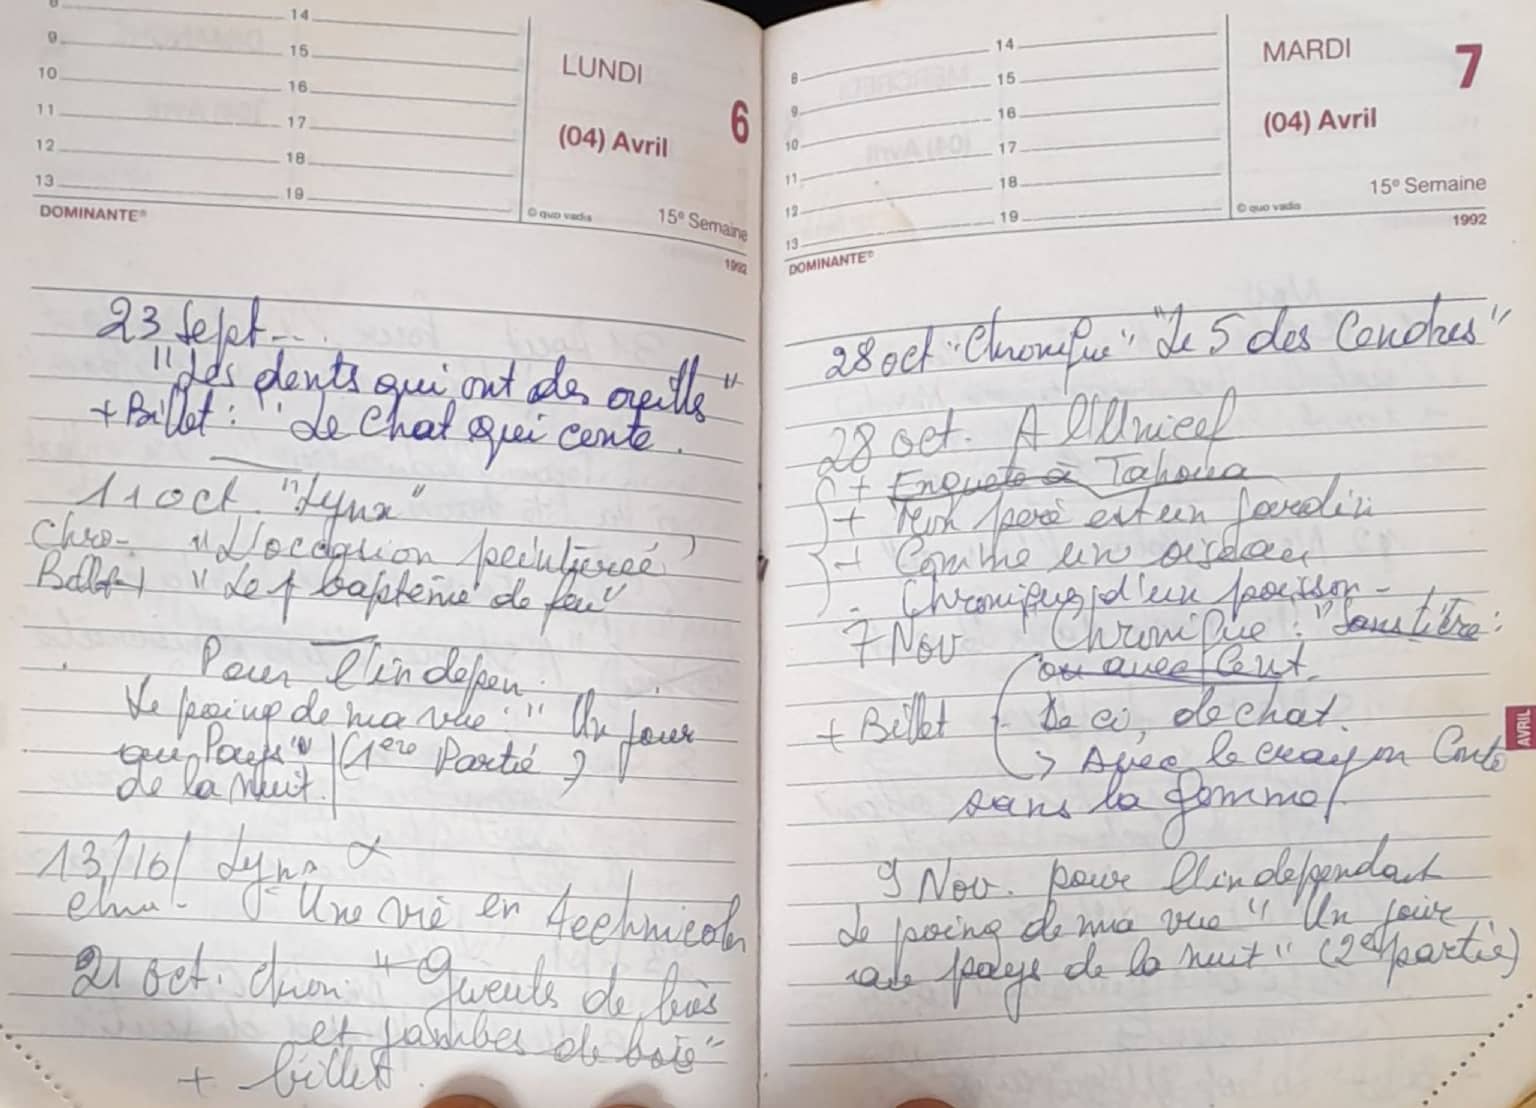 8
14
9
15
10
16
11
17
12
18
13
19
LUNDI
6
(04) Avril
DOMINANTE®
© quo vadis
15e Semaine
1992
23 Sept-..
"Les dents qui ont des oreilles"
+ Billet : "Le Chat qui conte.
11 oct. "Lynx"
Chro-. "L'occasion
Billet "Le baptême de feu"
Pour l'indepen.
Le poing de ma vue : " Un jour
au Pays" (1ere Partie)
de la nuit.
13/10/ Lynx
"Une vie en technicolor
21 oct. chron "Gueule de bois
et jambes de bois"
+ billet.
8
14
9
15
10
16
11
17
12
18
13
19
MARDI
7
(04) Avril
15e Semaine
© quo vadis
1992
DOMINANTE®
28 oct "Chronique" "Le 5 des Cendres"
28 oct. A l'Unicef
+ Enquete à Tahoua
+ Mon père est un jardin
+ Comme un oiseau
- Chronique d'un poisson -
7 Nov Chronique : "Sans titre :
ou avec Cent.
+ Billet - De ci, de chat
> Avec le crayon Conte
sans la gomme
9 Nov. pour l'independant
Le poing de ma vue " Un jour
au pays de la nuit" (2e partie)
AVRIL